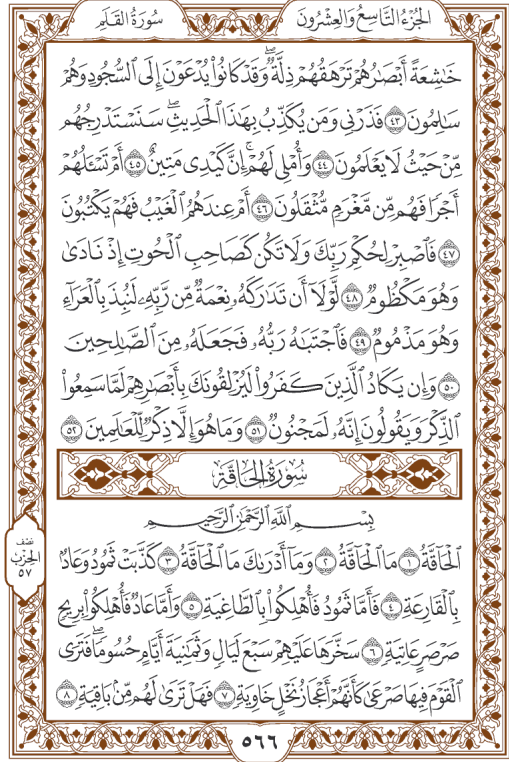 الجُزْءُ التَّاسِعُ وَالعِشْرُونَ
سُورَةُ القَلَمِ
خَٰشِعَةً أَبْصَٰرُهُمْ تَرْهَقُهُمْ ذِلَّةٌۖ وَقَدْ كَانُوا۟ يُدْعَوْنَ إِلَى ٱلسُّجُودِ وَهُمْ
سَٰلِمُونَ ٤٣ فَذَرْنِى وَمَن يُكَذِّبُ بِهَٰذَا ٱلْحَدِيثِۖ سَنَسْتَدْرِجُهُم
مِّنْ حَيْثُ لَا يَعْلَمُونَ ٤٤ وَأُمْلِى لَهُمْۚ إِنَّ كَيْدِى مَتِينٌ ٤٥ أَمْ تَسْـَٔلُهُمْ
أَجْرًا فَهُم مِّن مَّغْرَمٍ مُّثْقَلُونَ ٤٦ أَمْ عِندَهُمُ ٱلْغَيْبُ فَهُمْ يَكْتُبُونَ
٤٧ فَٱصْبِرْ لِحُكْمِ رَبِّكَ وَلَا تَكُن كَصَاحِبِ ٱلْحُوتِ إِذْ نَادَىٰ
وَهُوَ مَكْظُومٌ ٤٨ لَّوْلَآ أَن تَدَٰرَكَهُۥ نِعْمَةٌ مِّن رَّبِّهِۦ لَنُبِذَ بِٱلْعَرَآءِ
وَهُوَ مَذْمُومٌ ٤٩ فَٱجْتَبَٰهُ رَبُّهُۥ فَجَعَلَهُۥ مِنَ ٱلصَّٰلِحِينَ
٥٠ وَإِن يَكَادُ ٱلَّذِينَ كَفَرُوا۟ لَيُزْلِقُونَكَ بِأَبْصَٰرِهِمْ لَمَّا سَمِعُوا۟
ٱلذِّكْرَ وَيَقُولُونَ إِنَّهُۥ لَمَجْنُونٌ ٥١ وَمَا هُوَ إِلَّا ذِكْرٌ لِّلْعَٰلَمِينَ ٥٢
سُورَةُ الحَاقَّةِ
بِسْمِ ٱللَّهِ ٱلرَّحْمَٰنِ ٱلرَّحِيمِ
ٱلْحَآقَّةُ ١ مَا ٱلْحَآقَّةُ ٢ وَمَآ أَدْرَىٰكَ مَا ٱلْحَآقَّةُ ٣ كَذَّبَتْ ثَمُودُ وَعَادٌۢ
بِٱلْقَارِعَةِ ٤ فَأَمَّا ثَمُودُ فَأُهْلِكُوا۟ بِٱلطَّاغِيَةِ ٥ وَأَمَّا عَادٌ فَأُهْلِكُوا۟ بِرِيحٍ
صَرْصَرٍ عَاتِيَةٍ ٦ سَخَّرَهَا عَلَيْهِمْ سَبْعَ لَيَالٍ وَثَمَٰنِيَةَ أَيَّامٍ حُسُومًاۖ فَتَرَى
ٱلْقَوْمَ فِيهَا صَرْعَىٰ كَأَنَّهُمْ أَعْجَازُ نَخْلٍ خَاوِيَةٍ ٧ فَهَلْ تَرَىٰ لَهُم مِّنۢ بَاقِيَةٍ ٨
نِصْف
الحِزْب
٥٧
٥٦٦